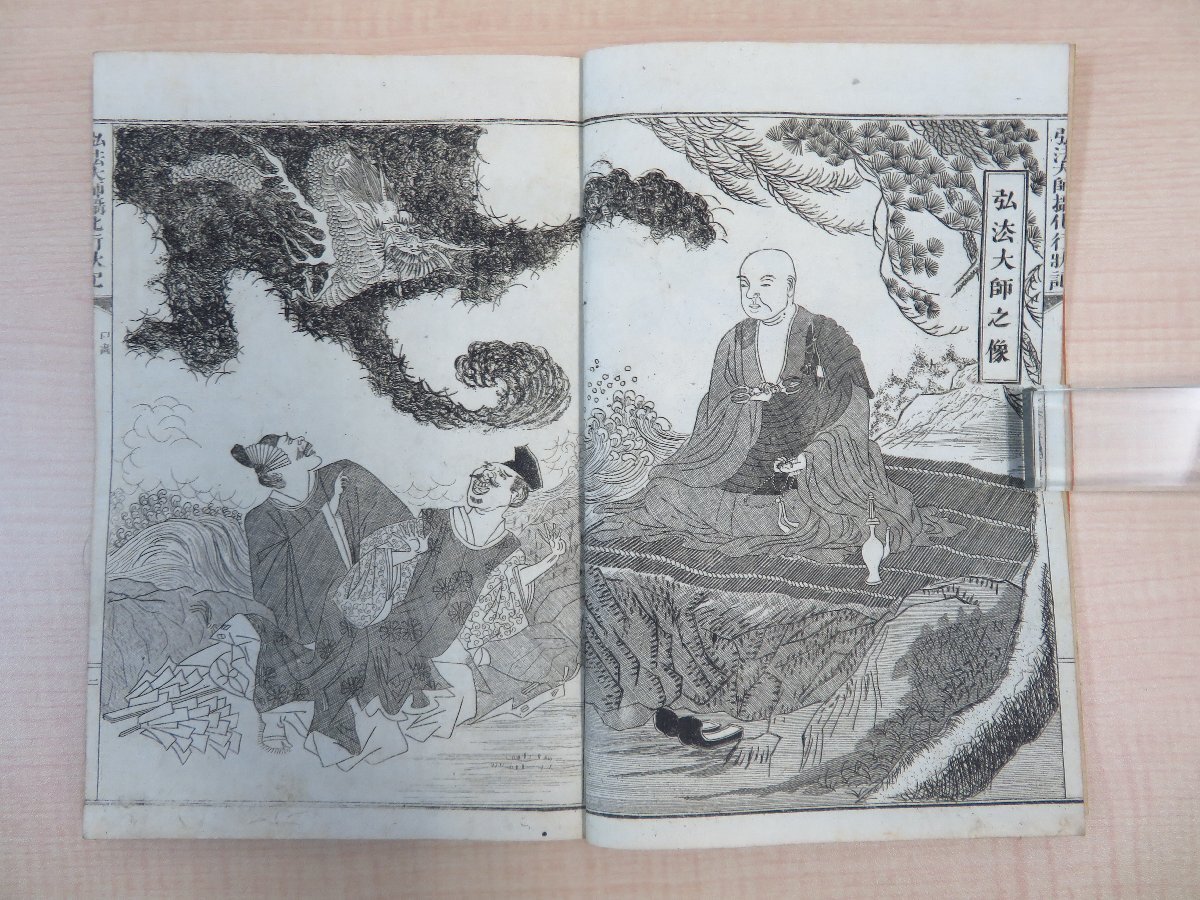 弘法大師之像
弘法大師摂化行状記
弘法大師摂化行状記
口画